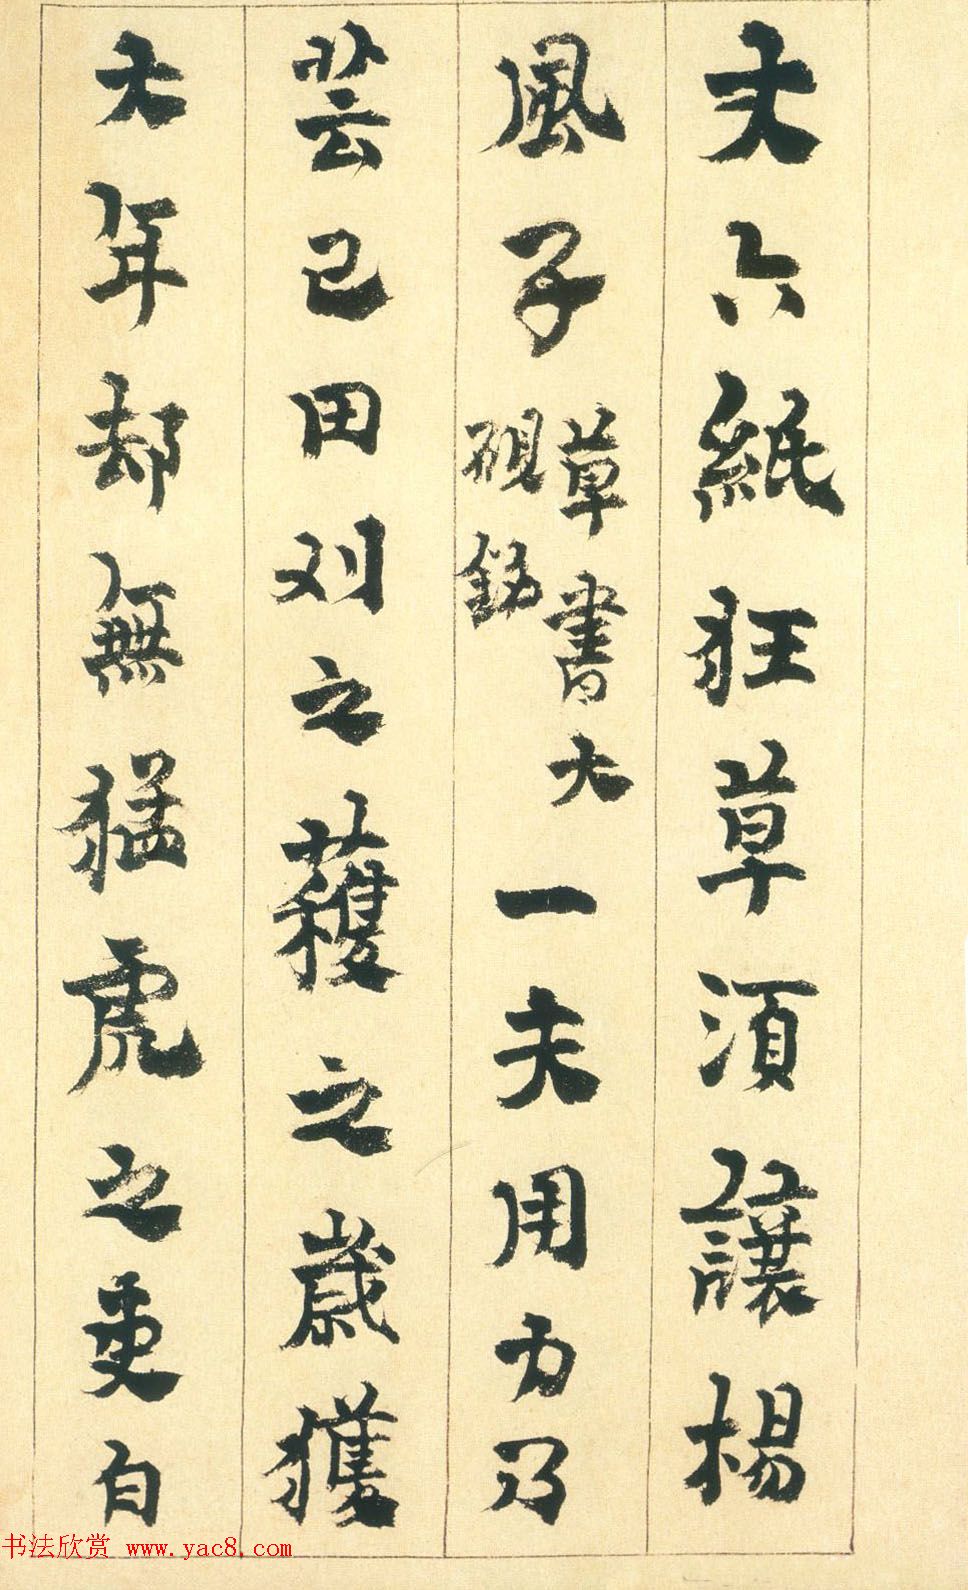 丈六紙狂草須讓楊
風子草書大硯銘一夫用力乃
芸己田刈之穫之歲獲
大年却無猛虎之吏白
书法欣赏 www.yac8.com